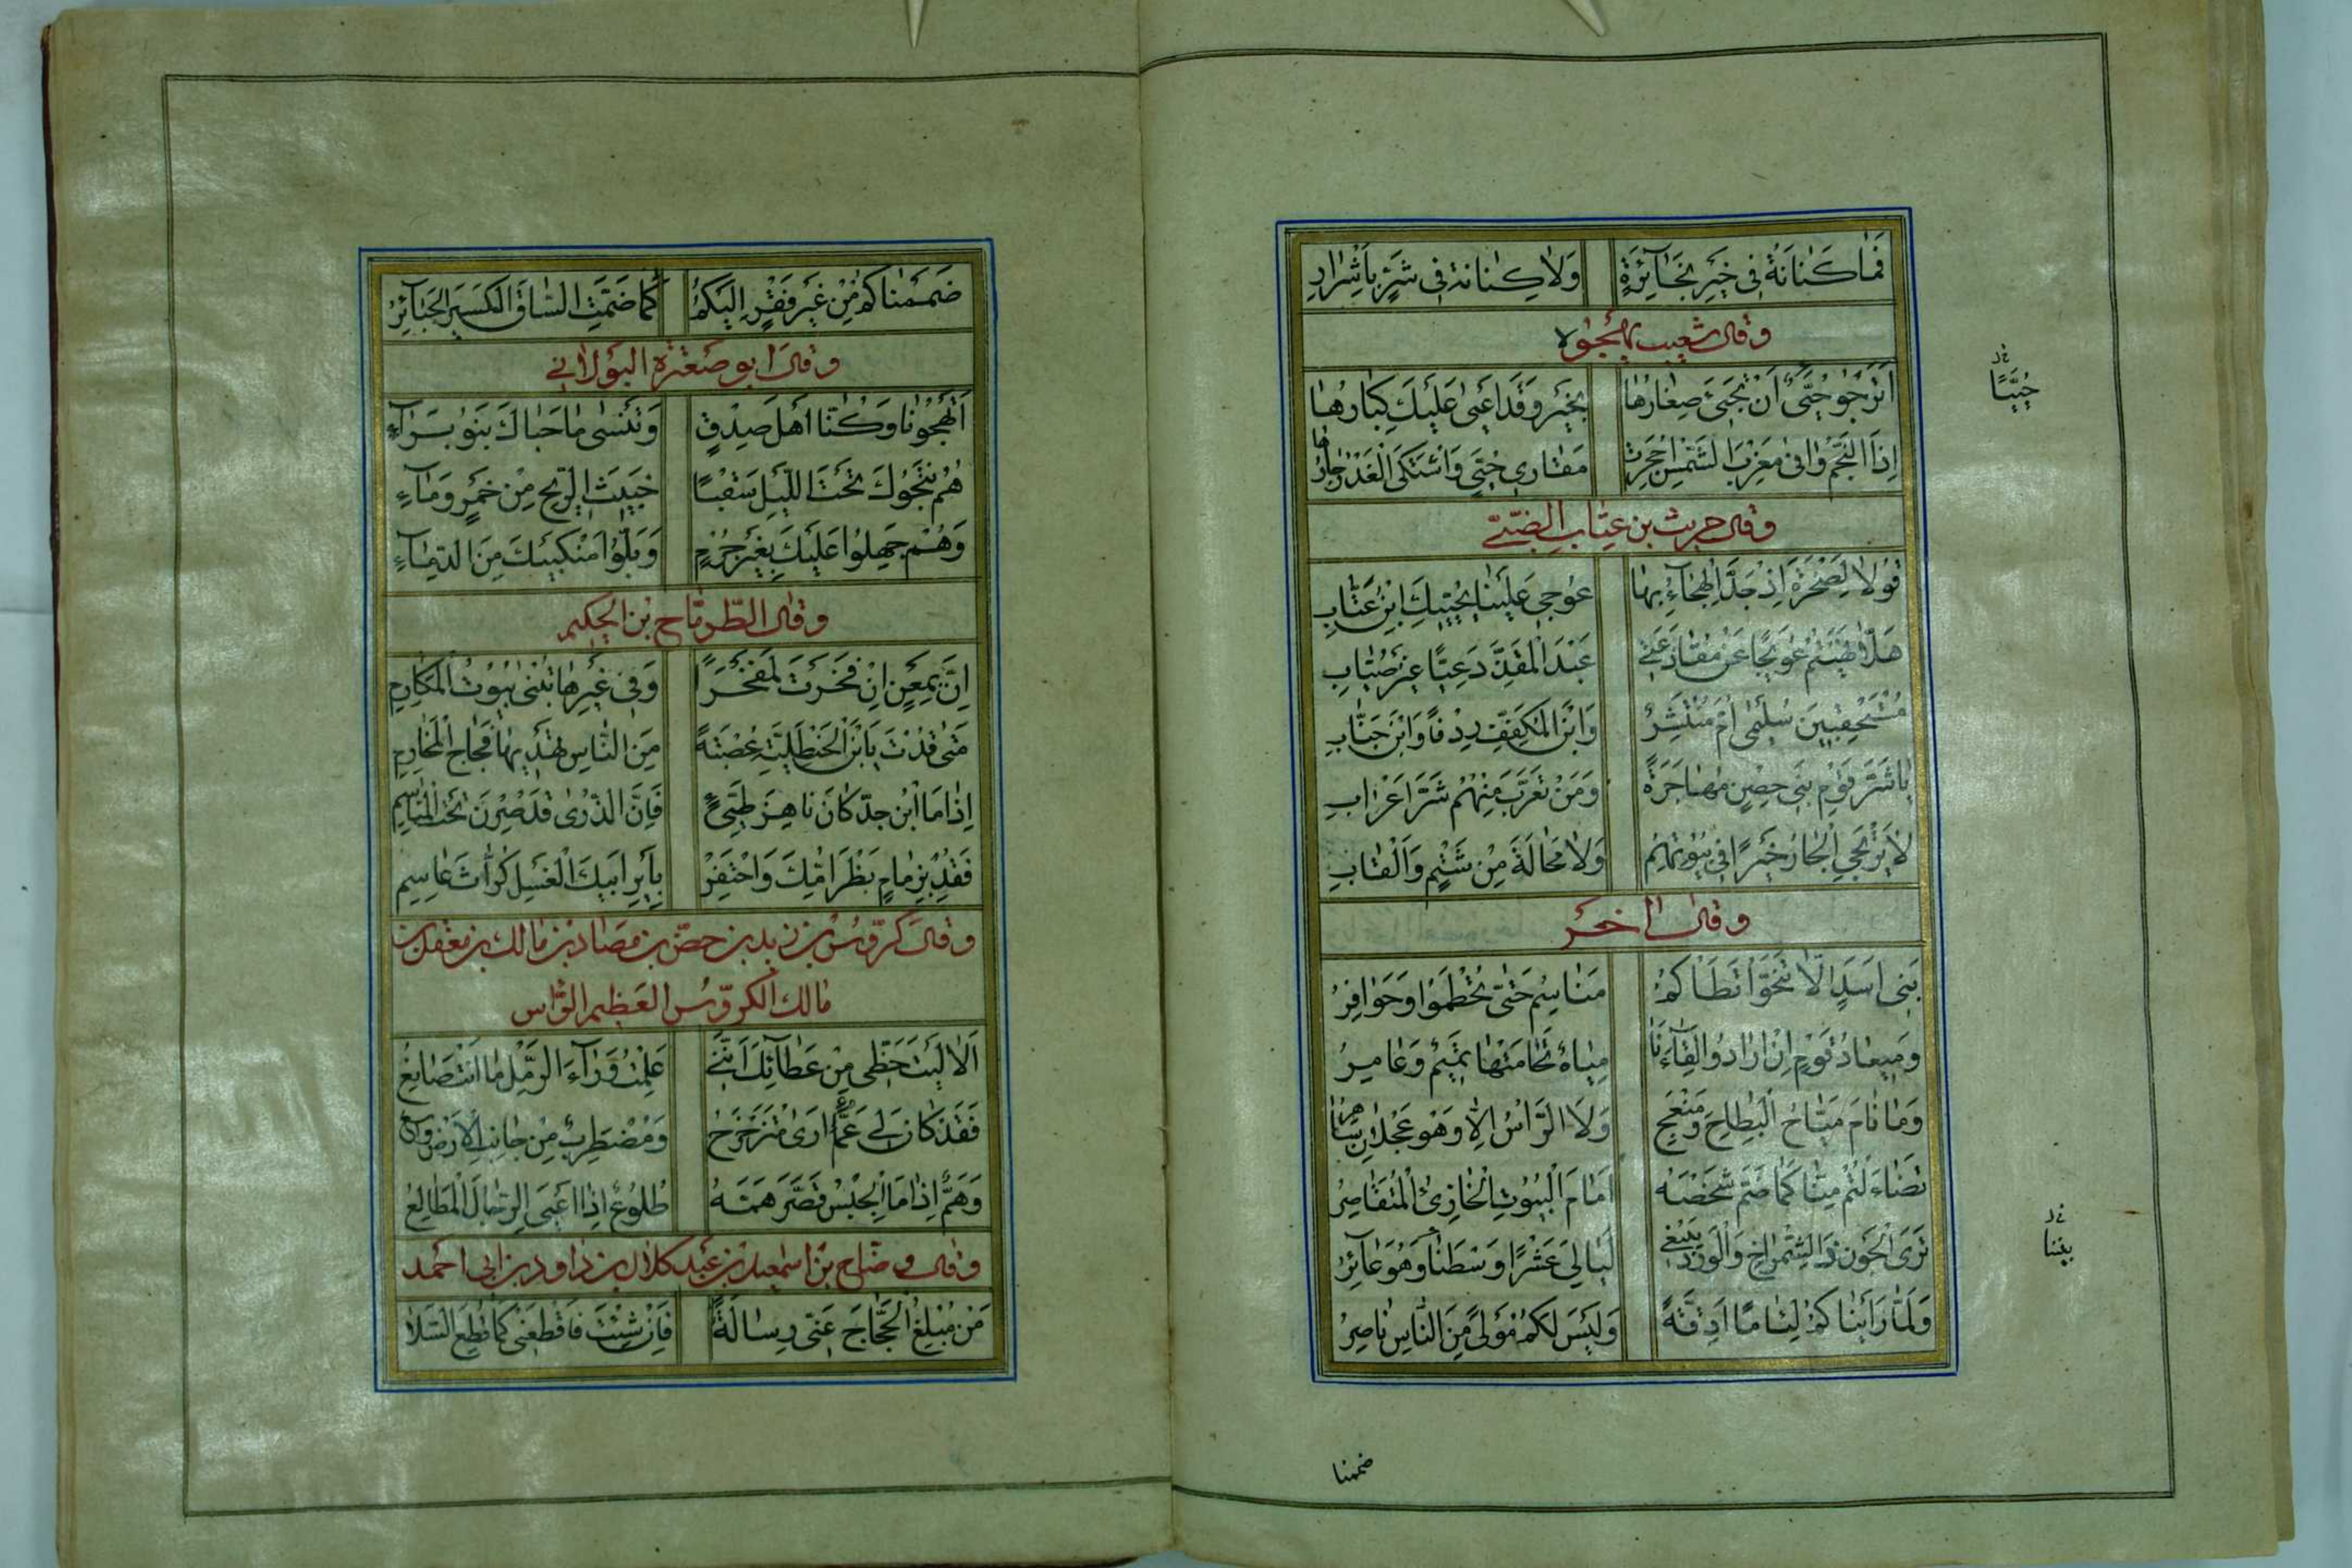 فَمَا كَنَانَةُ فِي خَيْرٍ بِخَائِرَةٍ وَلَا كِنَانَةُ فِي شَرٍّ بِأَشْرَارِ
وقال شعيب يهجوه
أَتَرْجُو حُيَيٌّ أَنْ تَجِيءَ صِغَارُهَا بِخَيْرٍ وَقَدْ أَعْيَى عَلَيْكَ كِبَارُهَا
إِذَا النَّجْمُ وَافَى مَغْرِبَ الشَّمْسِ أُجْحِرَتْ مَقَارِي حُيَيٍّ وَاشْتَكَى الْغَدْرَ جَارُهَا
وقال حريث بن عناب
قُولَا لِصَخْرَةَ إِذْ جَدَّ الْهِجَاءُ بِهَا عُوجِي عَلَيْنَا يُحَيِّيكِ ابْنُ عَنَّابِ
هَلَّا نَهَيْتُمْ عُوَيْجًا عَنْ مُقَاذَعَتِي عَبْدَ الْمَقَذِّ دَعِيًّا غَيْرَ صُيَّابِ
مُسْتَحْقِبِينَ سُلَيْمَى أُمَّ مُنْتَشِرٍ وَابْنَ الْمُكَفَّفِ رِدْفًا وَابْنَ خَبَّابِ
يَا شَرَّ قَوْمٍ بَنِي حِصْنٍ مُهَاجَرَةً وَمَنْ تَعَرَّبَ مِنْهُمْ شَرَّ أَعْرَابِ
لَا يَرْتَجِي الْجَارُ خَيْرًا فِي بُيُوتِهِمُ وَلَا مَحَالَةَ مِنْ شَتْمٍ وَأَلْقَابِ
وقال اخر
بَنِي أَسَدٍ إِلَّا تَنَحَّوْا تَطَأْكُمْ مَنَاسِمُ حَتَّى تُحْطَمُوا وَحَوَافِرُ
وَمِيعَادُ قَوْمٍ إِنْ أَرَادُوا لِقَاءَنَا مِيَاهٌ تَحَامَتْهَا تَمِيمٌ وَعَامِرُ
وَمَا نَامَ مَيَّاحُ الْبِطَاحِ وَمَنْعِجٍ وَلَا الرَّأْسُ إِلَّا وَهْوَ عَجْلَانُ سَاهِرُ
تَضَاءَلْتُمْ مِنَّا كَمَا ضَمَّ شَخْصَهُ أَمَامَ الْبُيُوتِ الْخَارِئُ الْمُتَقَاصِرُ
تَرَى الْجَوْنَ ذَا الشِّمْرَاخِ وَالْوَرْدَ يُبْتَغَى لَيَالِيَ عَشْرًا وَسْطَنَا وَهُوَ عَائِرُ
وَلَمَّا رَأَيْنَاكُمْ لِئَامًا أَدِقَّةً وَلَيْسَ لَكُمْ مَوْلًى مِنَ النَّاسِ نَاصِرُ
حُيَيًّا
بيننا
ضممنا
ضَمَمْنَاكُمْ مِنْ غَيْرِ فَقْرٍ إِلَيْكُمُ كَمَا ضَمَّتِ السَّاقَ الْكَسِيرَ الْجَبَائِرُ
وقال ابو صعترة البولاني
أَتَهْجُونَا وَكُنَّا أَهْلَ صِدْقٍ وَتَنْسَى مَا حَبَاكَ بَنُو بَرَاءِ
هُمُ نَتَجُوكَ تَحْتَ اللَّيْلِ سَقْبًا خَبِيثَ الرِّيحِ مِنْ خَمْرٍ وَمَاءِ
وَهُمْ جَهِلُوا عَلَيْكَ بِغَيْرِ جُرْمٍ وَبَلُّوا مَنْكِبَيْكَ مِنَ الدِّمَاءِ
وقال الطرماح بن الحكيم
إِنَّ بِمَعْنٍ إِنْ فَخَرْتَ لَمَفْخَرًا وَفِي غَيْرِهَا تُبْنَى بُيُوتُ الْمَكَارِمِ
مَتَى قُدْتَ يَا ابْنَ الْحَنْظَلِيَّةِ عُصْبَةً مِنَ النَّاسِ تَهْدِيهَا فِجَاجَ الْمَخَارِمِ
إِذَا مَا ابْنُ جَدٍّ كَانَ نَاهِزَ طَيِّئٍ فَإِنَّ الذُّرَى قَدْ صِرْنَ تَحْتَ الْمَنَاسِمِ
فَقُدْ بِزِمَامٍ بَظْرَ أُمِّكَ وَاحْتَفِرْ بِأَيْرِ أَبِيكَ الْفَسْلِ كُرَّاثَ عَاسِمِ
وقال كروس بن زيد بن حصن بن مصاد بن مالك بن معقل بن
مالك الكروس العظيم الراس
أَلَا لَيْتَ حَظِّي مِنْ عَطَائِكَ أَنَّنِي عَلِمْتُ وَرَاءَ الرَّمْلِ مَا أَنْتَ صَانِعُ
فَقَدْ كَانَ لِي عَمَّا أَرَى مُتَزَحْزَحٌ وَمُضْطَرَبٌ مِنْ جَانِبِ الْأَرْضِ وَاسِعُ
وَهَمٌّ إِذَا مَا الْجِبْسُ قَصَّرَ هَمَّهُ طَلُوعٌ إِذَا أَعْيَى الرِّجَالَ الْمَطَالِعُ
وقال وضاح بن اسمعيل بن عبد كلال بن داود بن ابي احمد
مَنْ مُبْلِغُ الْحَجَّاجِ عَنِّي رِسَالَةً فَإِنْ شِئْتَ فَاقْطَعْنِي كَمَا قُطِعَ السَّلَا